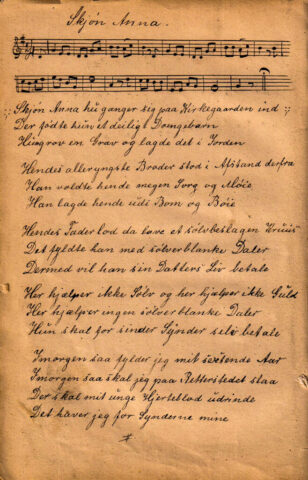 Skjön Anna.
Skjön Anna hu ganger sig paa Kirkegaarden ind
Der födte hun et deilig Domgebarn
Hun grov en Grav og lagde det i Jorden
Hendes alleryngste Broder stod i Afstand derfra
Han voldte hende megen Sorg og Möie
Han lagde hende udi Bom og Böie
Hendes Fader lod da lave et sölvbeslagen
Det fyldte han med sölverblanke Daler
Dermed vil han sin Datters Liv betale
Her hjælper ikke Sölv og her hjælper ikke Guld
Her hjælper ingen sölver blanke Daler
Hun skal for sinder Synder selv betale
Imorgen saa fylder jeg mit sextende Aar
Imorgen saa skal jeg paa Retterstedet staa
Der skal mit unge Hjerteblod udrinde
Det haver jeg for Synderne mine